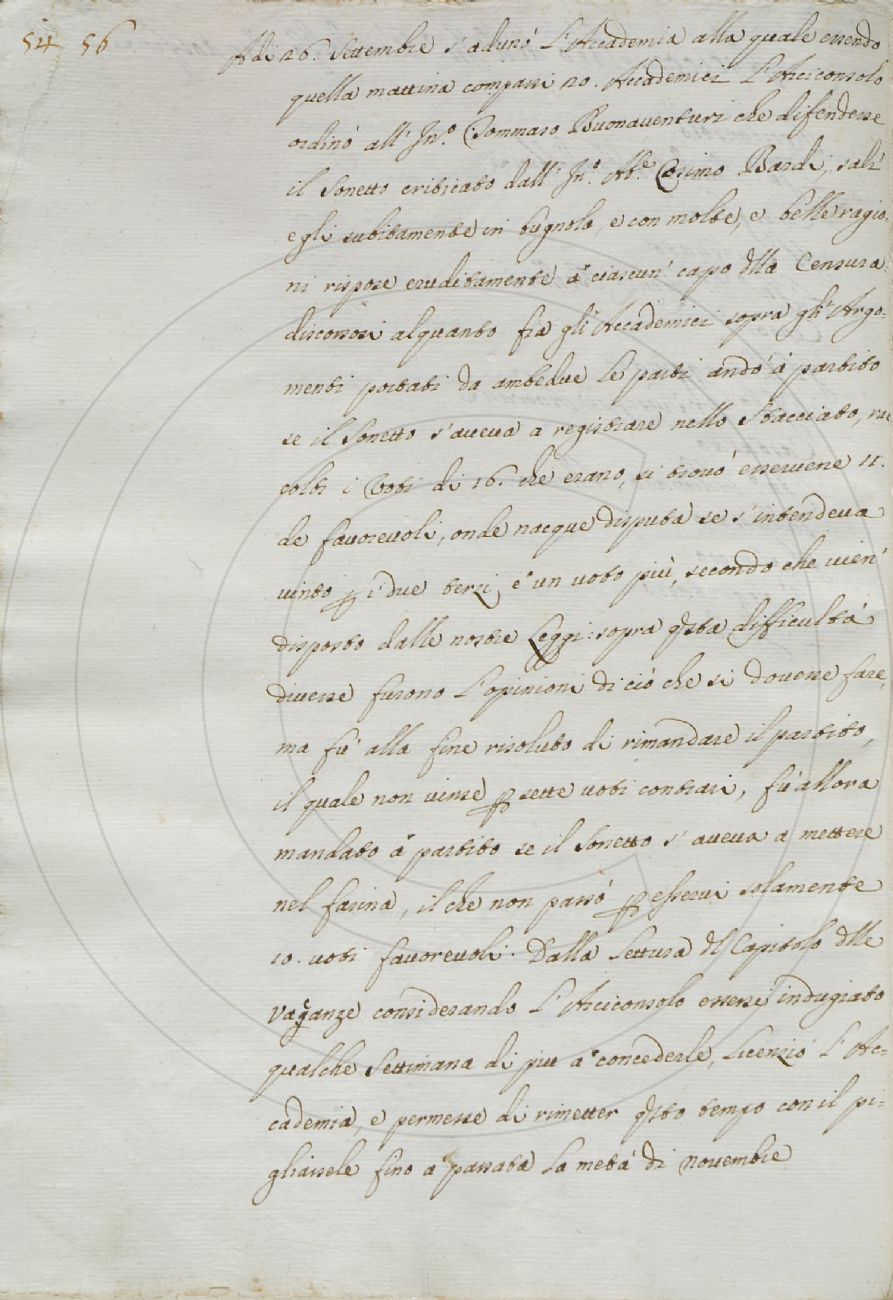 54 56
Adi 26. Settembre s'adunó L'Accademia alla quale essendo
quella mattina comparsi 20. Accademici L'Arciconsolo
ordinó all' Jn.º Tommaso Buonaventuri che difendesse
il Sonetto criticato dall' Jn.º Ab.e Cosimo Bardi, salí
egli subitamente in bugnola, e con molte, e belle ragio-
ni rispose eruditamente à ciascun' capo dlla Censura.
discorsosi alquanto fra gli Accademici sopra gli Argo-
menti portati da ambedue le parti andó á partito
se il Sonetto s'aveva a registrare nello Stacciato, rac
colti i Voti di 16. che erano, si trovó esservene 11.
de favorevoli, onde nacque disputa se s'intendeva
vinto p i due terzi, e un voto più, secondo che vien'
disposto dalle nostre Leggi: sopra qsta difficultá
diverse furono L'opinioni di ció che si dovesse fare,
ma fú alla fine risoluto di rimandare il partito,
il quale non vinse p sette voti contrari, fú allora
mandato á partito se il Sonetto s'aveva a mettere
nel farina, il che non passó p esservi solamente
10. voti favorevoli. Dalla Lettura dl Capitolo dlle
Vacanze considerando L'Arciconsolo essersi indugiato
qualche Settimana di piu a concederle, Licenzió L'Ac-
cademia, e permesse di rimetter qsto tempo con il pi-
gliarsele fino a passata La metá di novembre